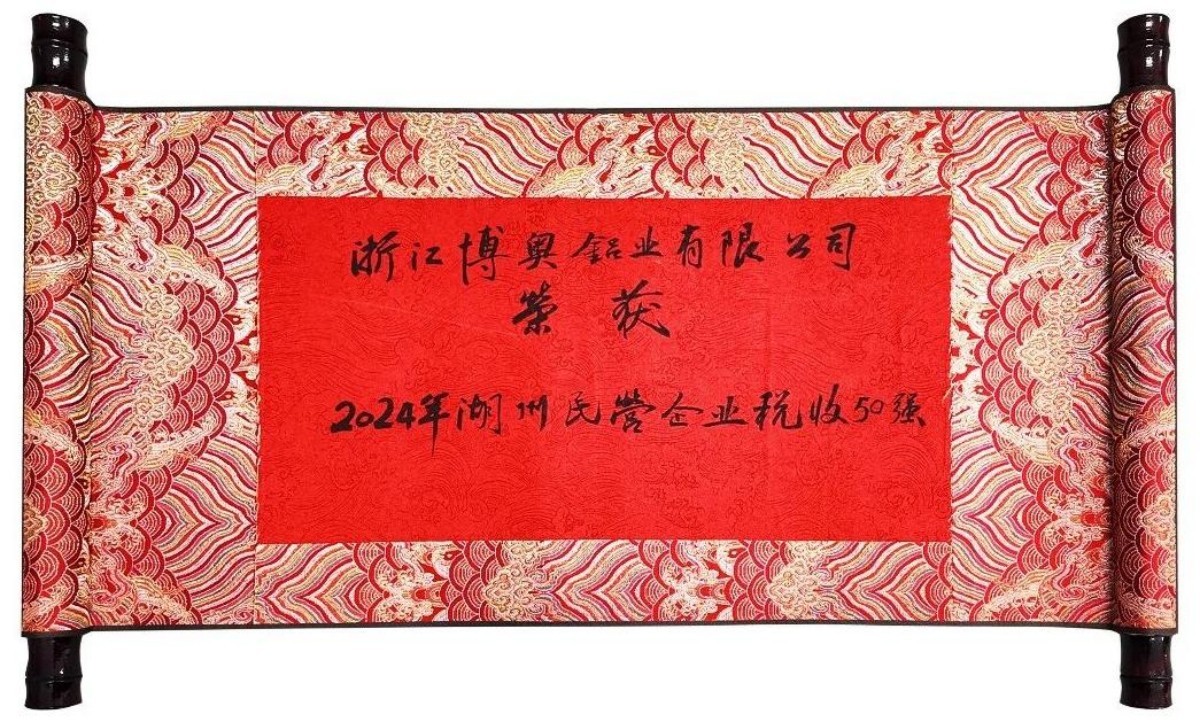 浙江博奥铝业有限公司
荣获
2024年湖州民营企业税收50强